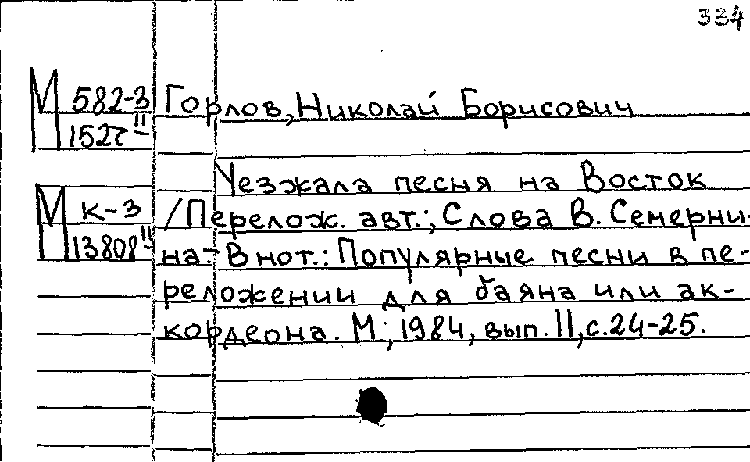 334
М 582-3 Горлов, Николай Борисович
1527 II
Уезжала песня на Восток
М К-3 /Перелож. авт.; Слова В. Семерни-
13808 II на.- В нот.: Популярные песни в пе-
реложении для баяна или ак-
кордеона. М., 1984, вып. 11, с. 24-25.